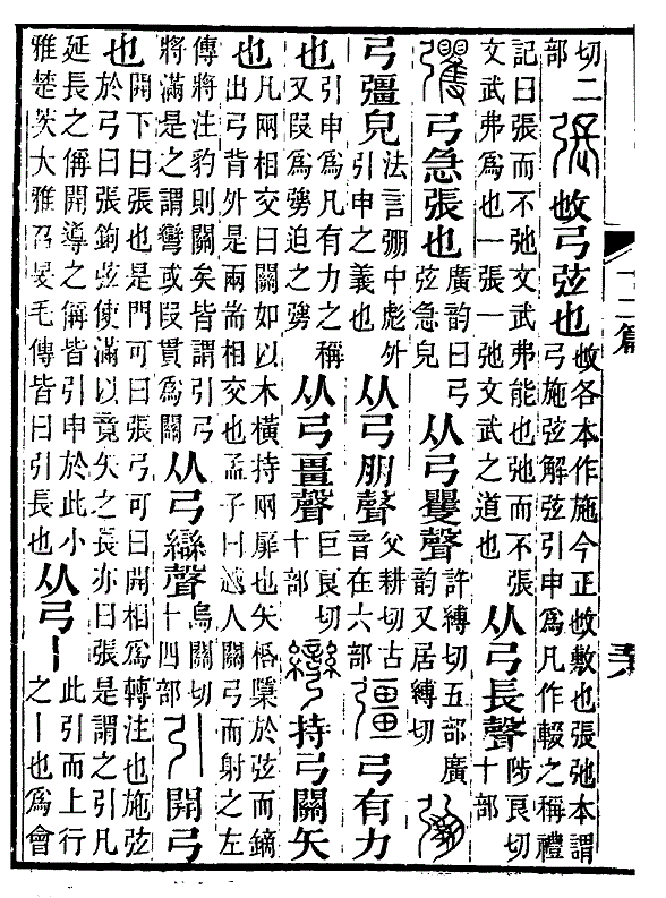 切二部張㪇弓弦也㪇各本作施今正㪇敷也張弛本謂弓施弦解弦引申爲凡作輟之稱禮
記曰張而不弛文武弗能也弛而不張文武弗爲也一張一弛文武之道也从弓長聲陟良切十部
彏弓急張也廣韵曰弓弦急皃从弓矍聲許縛切五部廣韵又居縛切弸
弓彊皃法言弸中彪外引申之義也从弓朋聲父耕切古音在六部彊弓有力
也引申爲凡有力之稱又叚爲勥迫之勥从弓畺聲巨良切十部彎持弓關矢
也凡兩相交曰關如以木橫持兩扉也矢桰檃於弦而鏑出弓背外是兩耑相交也孟子曰越人關弓而射之左
傳將注豹則關矣皆謂引弓將滿是之謂彎或叚貫爲關从弓䜌聲烏關切十四部引開弓
也開下曰張也是門可曰張弓可曰開相爲轉注也施弦於弓曰張鉤弦使滿以竟矢之長亦曰張是謂之引凡
延長之偁開導之偁皆引申於此小雅楚茨大雅召旻毛傳皆曰引長也从弓丨此引而上行之丨也爲會
十二篇